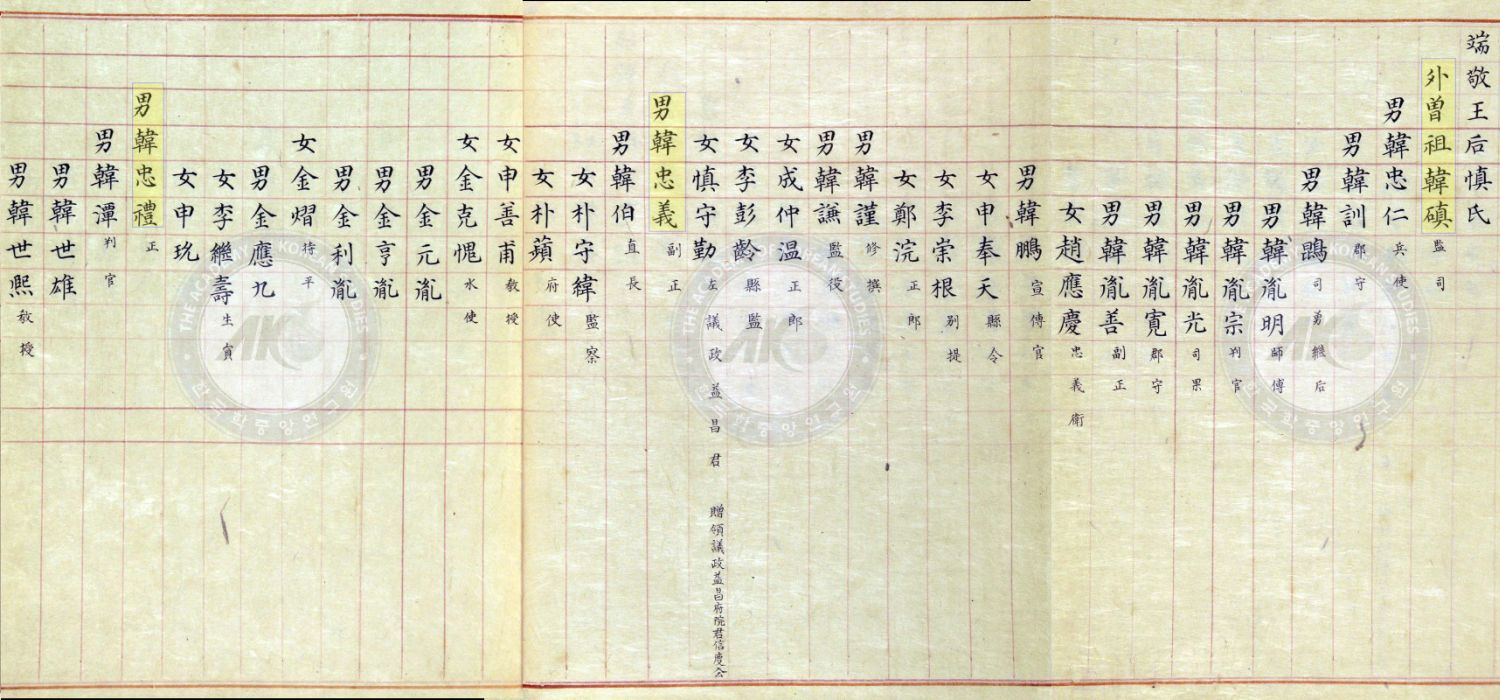 端敬王后慎氏
外曾祖韓磌 監司
男韓忠仁 兵使
男韓訓 郡守
男韓鵾 司勇 繼后
男韓胤明 師傅
男韓胤宗 判官
男韓胤光 司果
男韓胤寬 郡守
男韓胤善 副正
女趙應慶 忠義衛
男韓鵬 宣傳官
女申奉天 縣令
女李崇根 別提
女鄭浣 正郎
男韓謹 修撰
男韓謙 監役
女成仲温 正郎
女李彭齡 縣監
女慎守勤 左議政益昌君 贈領議政益昌府院君信度公
男韓忠義 副正
男韓伯 直長
女朴守緯 監察
女朴蘋 府使
女申善甫 教授
女金克愧 水使
男金元胤
男金亨胤
男金利胤
女金熠 持平
男金應九
女李繼壽 生員
女申玧
男韓忠禮 正
男韓潭 判官
男韓世雄
男韓世熙 教授
THE ACADEMY OF KOREAN STUDIES
AKS
한국학중앙연구원
THE ACADEMY OF KOREAN STUDIES
AKS
한국학중앙연구원
THE ACADEMY OF KOREAN STUDIES
AKS
한국학중앙연구원